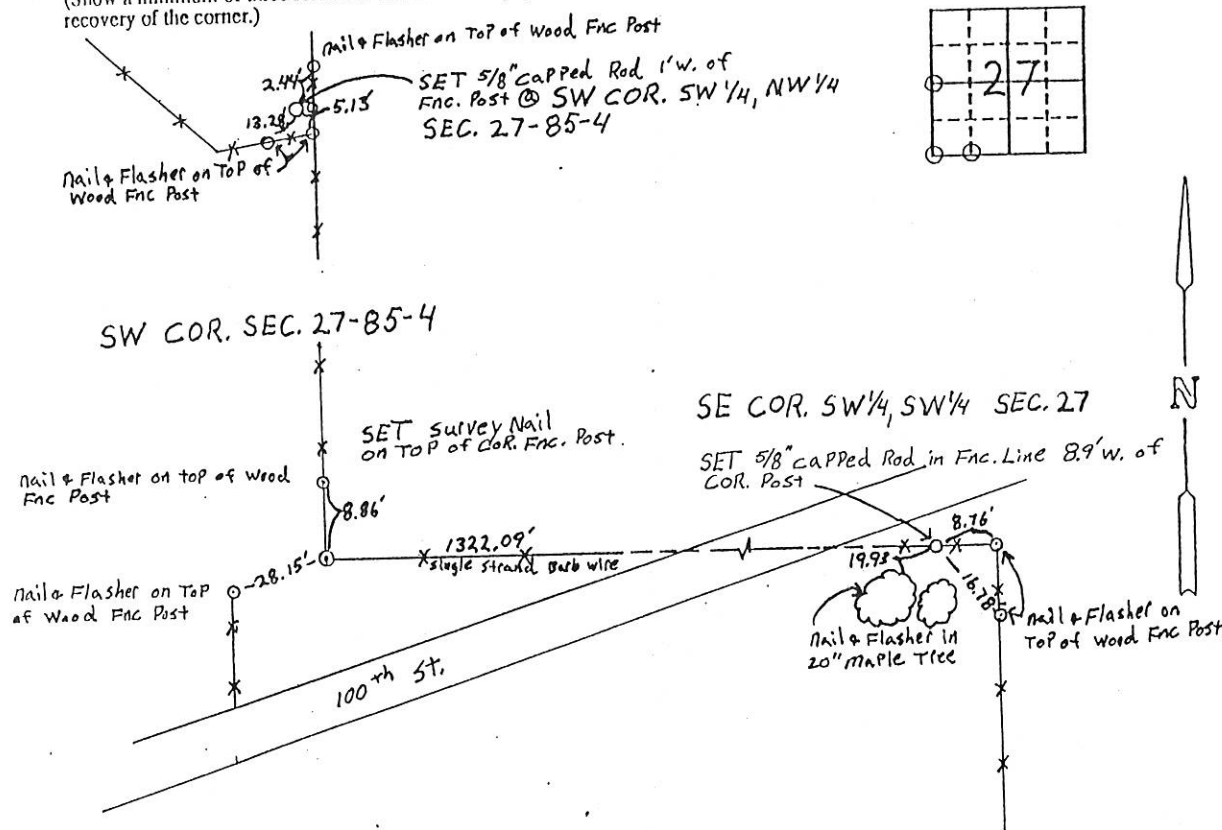 recovery of the corner.)
nail & Flasher on ToP of Wood Fnc Post
2.44'
SET 5/8" capped Rod 1' w. of
Fnc. Post @ SW COR. SW 1/4, NW 1/4
SEC. 27-85-4
5.13'
13.28'
nail & Flasher on ToP of
Wood Fnc Post
27
SW COR. SEC. 27-85-4
SET Survey Nail
on ToP of CoR. Fnc. Post.
nail & Flasher on top of Wood
Fnc Post
8.86'
28.15'
1322.09'
single strand Barb wire
nail & Flasher on ToP
of Wood Fnc Post
100th St.
N
SE COR. SW 1/4, SW 1/4 SEC. 27
SET 5/8" capped Rod in Fnc. Line 8.9' w. of
COR. Post
8.76'
19.93
16.78'
nail & Flasher in
20" maple Tree
nail & Flasher on
ToP of Wood Fnc Post